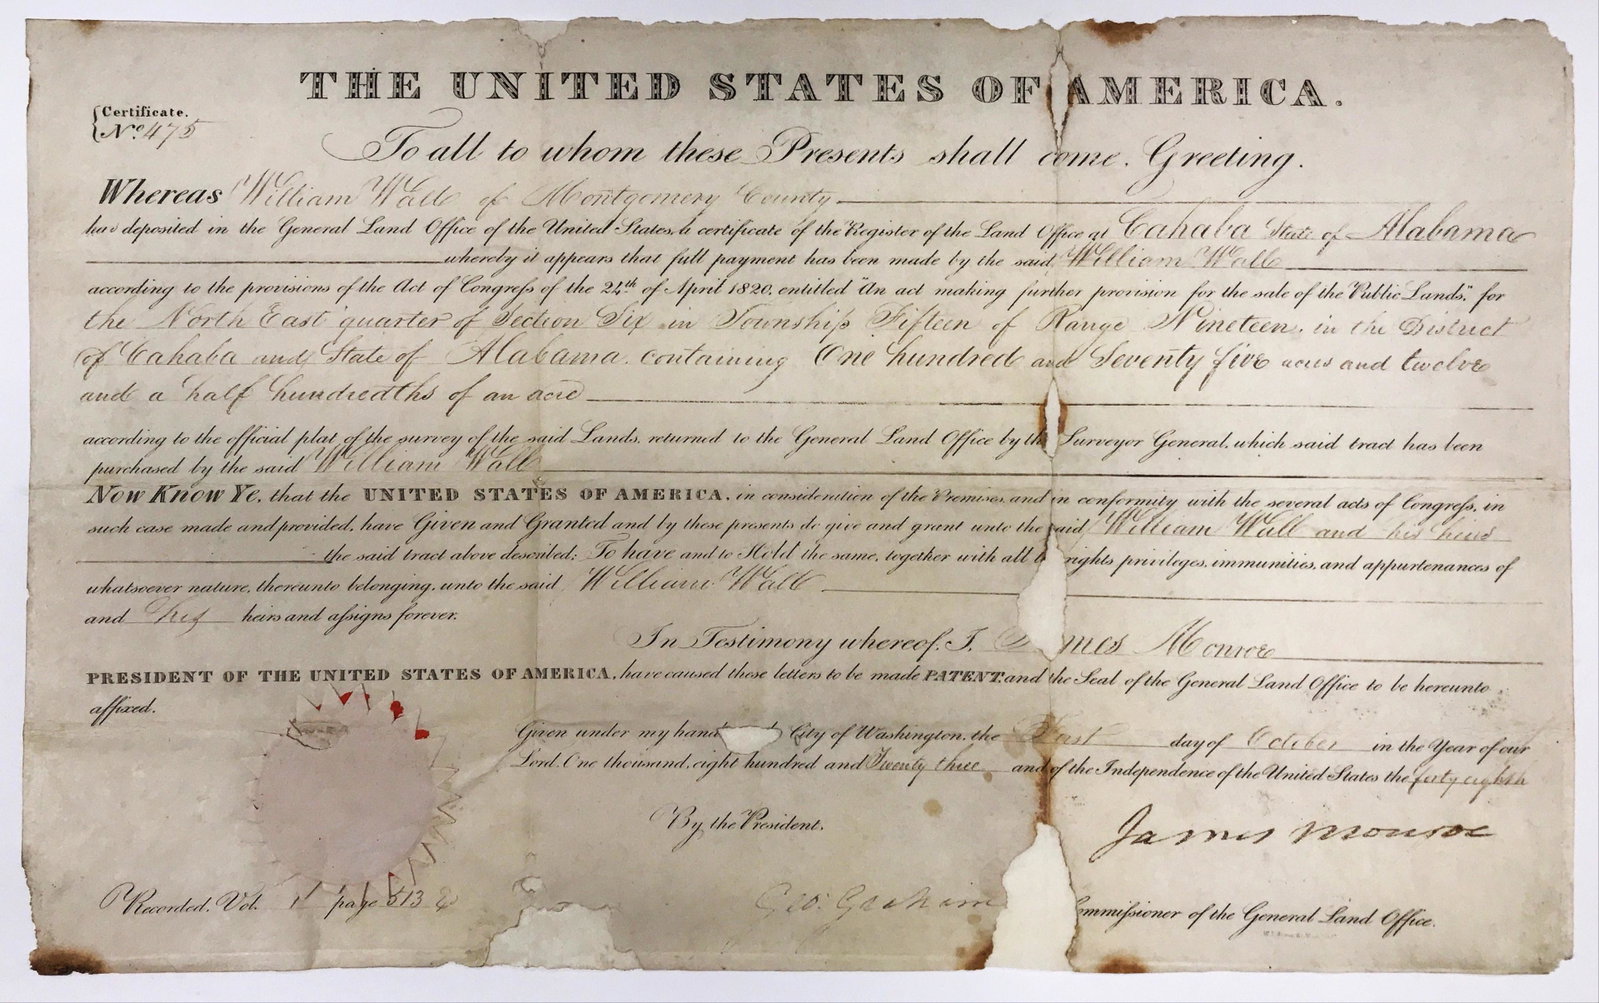 THE UNITED STATES OF AMERICA.
Certificate.
No. 475
To all to whom these Presents shall come, Greeting.
Whereas William Wall of Montgomery County
has deposited in the General Land Office of the United States, a certificate of the Register of the Land Office at Cahaba State of Alabama
whereby it appears that full payment has been made by the said William Wall
according to the provisions of the Act of Congress of the 24th of April 1820, entitled "An act making further provision for the sale of the Public Lands," for
the North East quarter of Section Six in Township Fifteen of Range Nineteen, in the District
of Cahaba and State of Alabama, containing One hundred and Seventy five acres and twelve
and a half hundredths of an acre
according to the official plat of the survey of the said Lands, returned to the General Land Office by the Surveyor General, which said tract has been
purchased by the said William Wall
Now Know Ye, that the UNITED STATES OF AMERICA, in consideration of the Premises, and in conformity with the several acts of Congress, in
such case made and provided, have Given and Granted and by these presents do give and grant unto the said William Wall and his heirs
the said tract above described; To have and to Hold the same, together with all rights privileges, immunities, and appurtenances of
whatsoever nature, thereunto belonging, unto the said William Wall
and his heirs and assigns forever.
In Testimony whereof, I, James Monroe
PRESIDENT OF THE UNITED STATES OF AMERICA, have caused these letters to be made PATENT and the Seal of the General Land Office to be hereunto
affixed.
Given under my hand City of Washington, the First day of October in the Year of our
Lord, One thousand, eight hundred and Twenty three and of the Independence of the United States the forty eighth
By the President.
James Monroe
Recorded, Vol. 1 page 513
Geo: Graham Commissioner of the General Land Office.